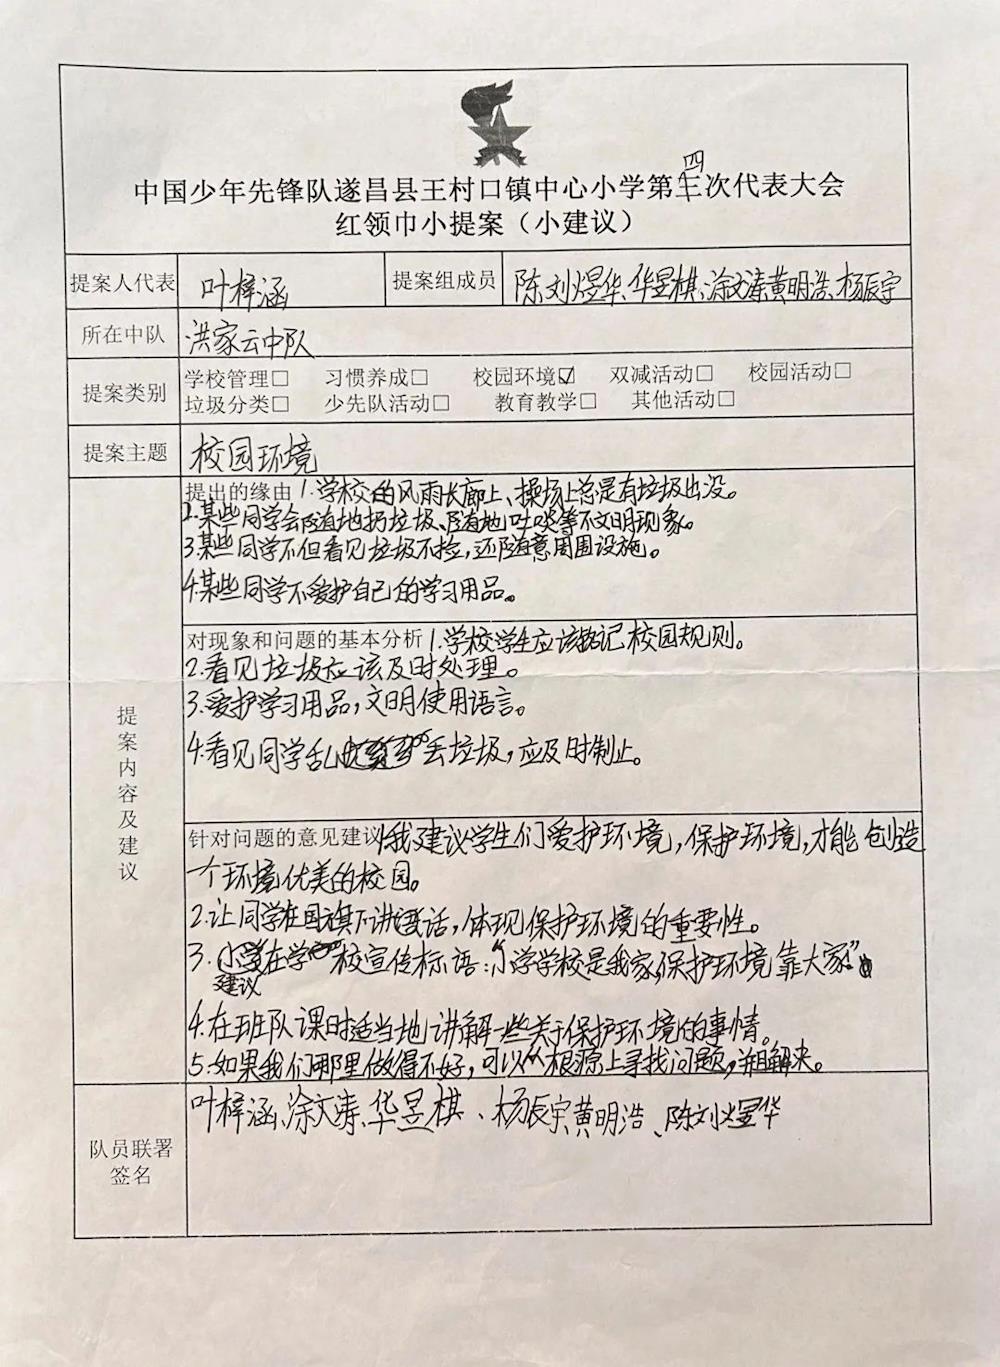 中国少年先锋队遂昌县王村口镇中心小学第四次代表大会
红领巾小提案（小建议）
提案人代表 叶梓涵 提案组成员 陈刘煜华、华昱棋、涂文涛、黄明浩、杨辰宇
所在中队 洪家云中队
提案类别 学校管理□ 习惯养成□ 校园环境☑ 双减活动□ 校园活动□
垃圾分类□ 少先队活动□ 教育教学□ 其他活动□
提案主题 校园环境
提案内容及建议
提出的缘由 1.学校的风雨长廊上、操场上总是有垃圾出没。
2.某些同学会随地扔垃圾、随地吐痰等不文明现象。
3.某些同学不但看见垃圾不捡，还随意周围设施。
4.某些同学不爱护自己的学习用品。
对现象和问题的基本分析 1.学校学生应该铭记校园规则。
2.看见垃圾应该及时处理。
3.爱护学习用品，文明使用语言。
4.看见同学乱丢垃圾，应及时制止。
针对问题的意见建议 1.我建议学生们爱护环境，保护环境，才能创造
一个环境优美的校园。
2.让同学在国旗下讲话，体现保护环境的重要性。
3.建议在学校宣传标语：“小学学校是我家，保护环境靠大家”。
4.在班队课时适当地讲解一些关于保护环境的事情。
5.如果我们哪里做得不好，可以从根源上寻找问题，并且解决。
队员联署
签名
叶梓涵、涂文涛、华昱棋、杨辰宇、黄明浩、陈刘煜华